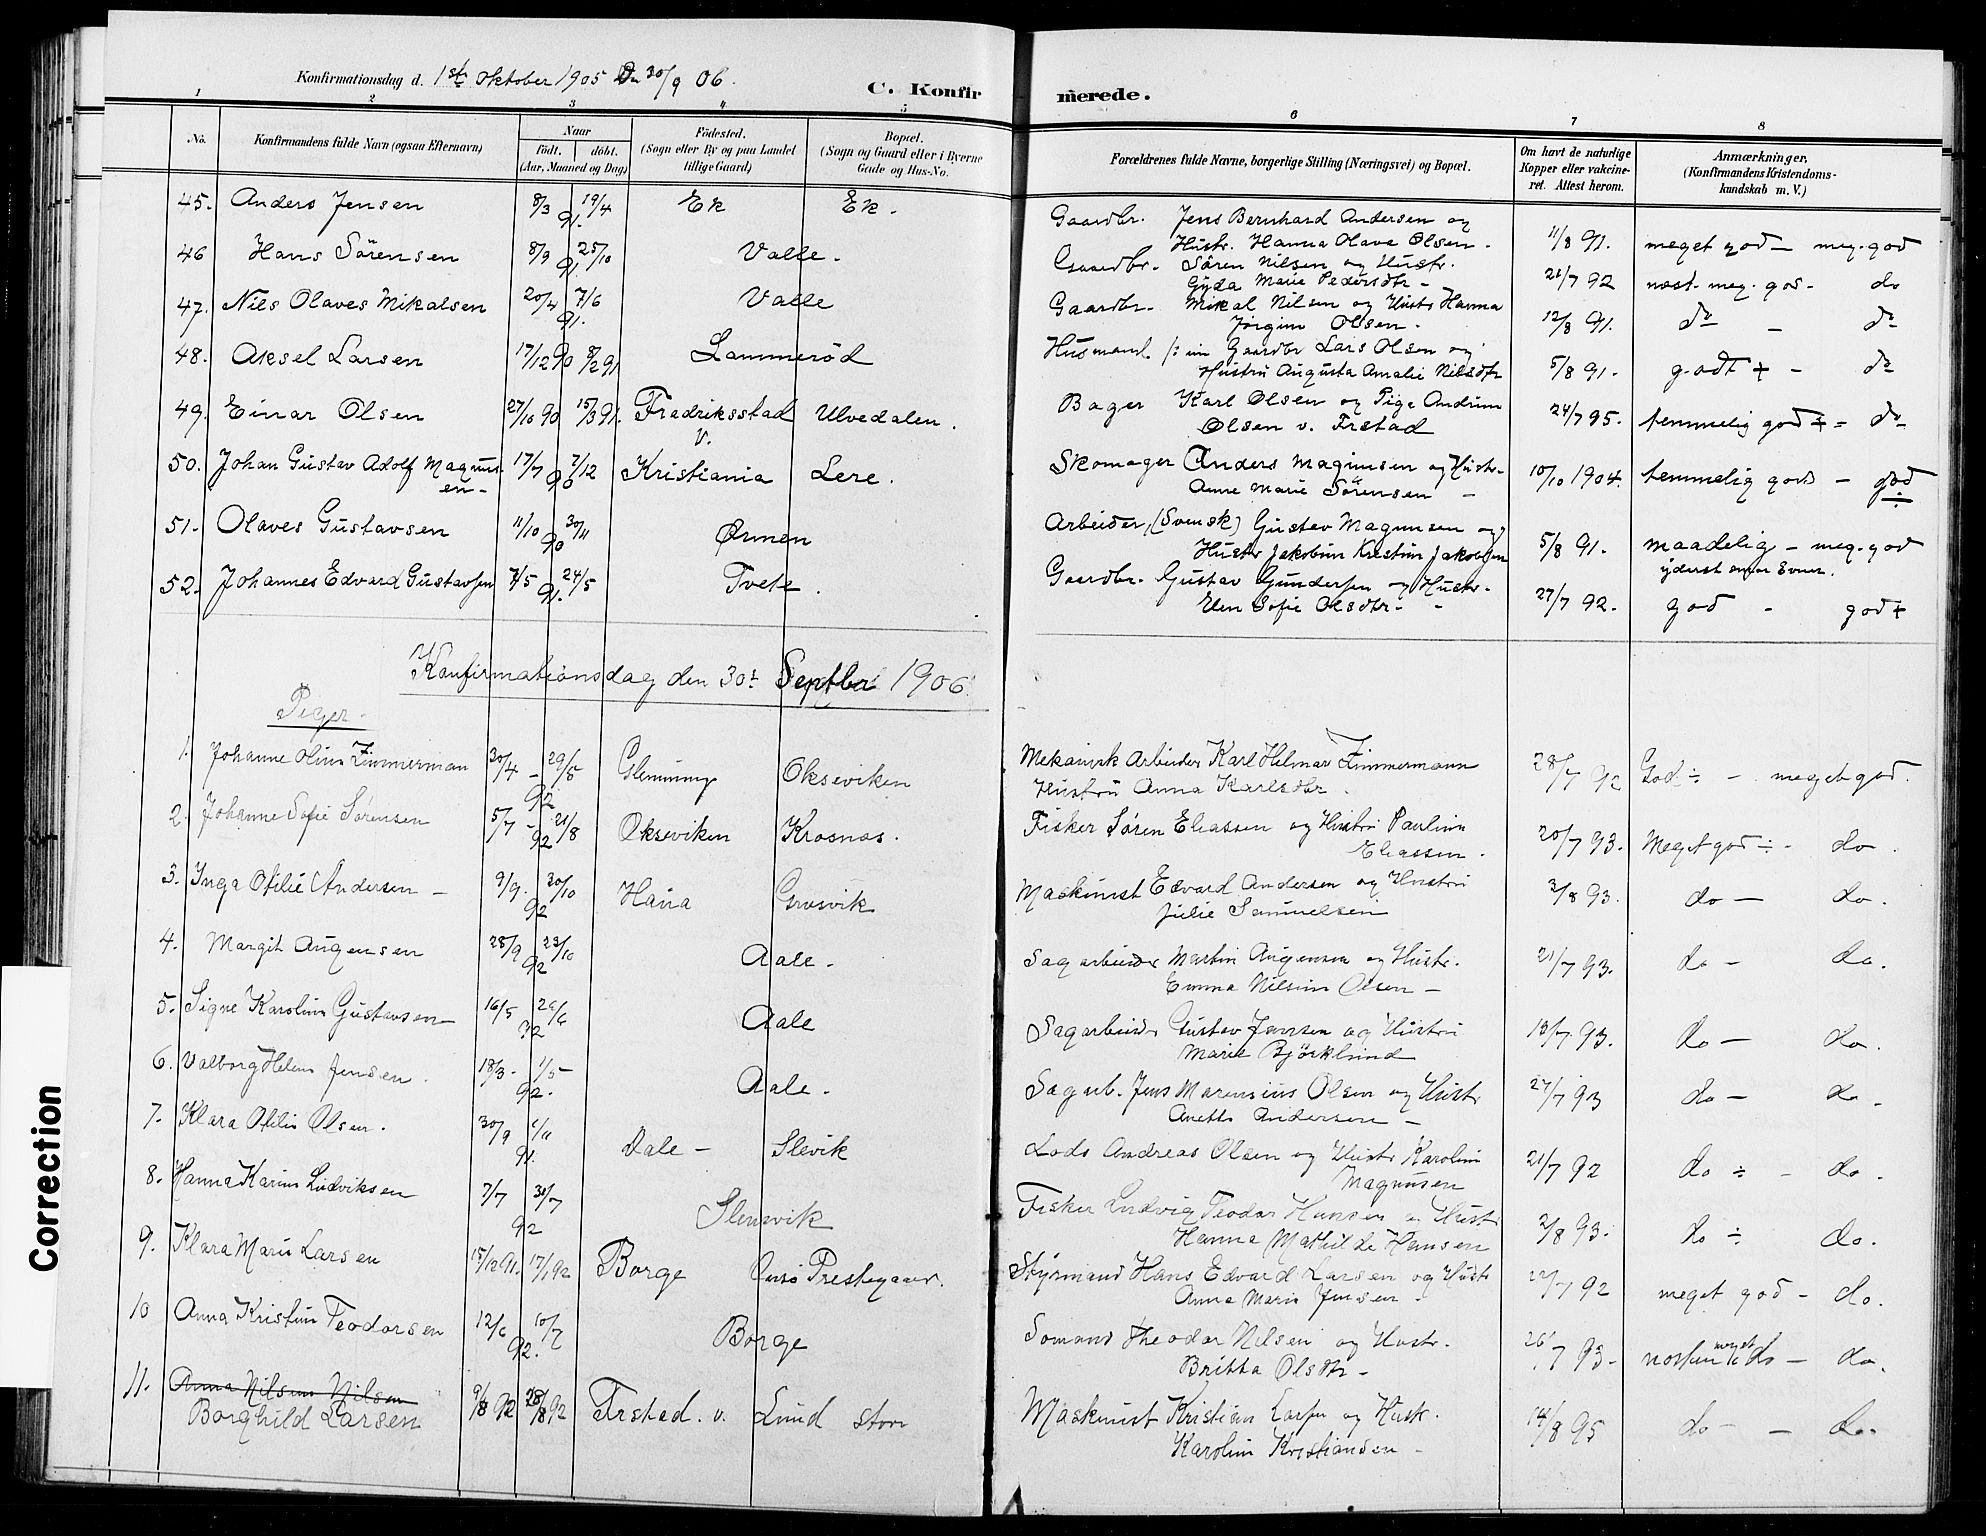 Konfirmationsdag d. 1ste Oktober 1905 Den 30/9 06.
C. Konfirmerede.
1 2 3 4 5 6 7 8
No.
Konfirmandens fulde Navn (ogsaa Efternavn)
Naar
födt. döbt.
(Aar, Maaned og Dag)
Födested.
(Sogn eller By og paa Landet
tillige Gaard)
Bopæl.
(Sogn og Gaard eller i Byerne
Gade og Hus-No.
Forældrenes fulde Navne, borgerlige Stilling (Næringsvei) og Bopæl.
Om havt de naturlige
Kopper eller vakcine-
ret. Attest herom.
Anmærkninger,
(Konfirmandens Kristendoms-
kundskab m. V.)
45. Anders Jensen 8/3 91. 19/4 Ek Ek. Gaardbr. Jens Bernhard Andersen og
Hustr. Hanna Olava Olsen. 11/8 91. meget god - meg. god
46 Hans Sörensen 8/9 91. 25/10 Valle. Gaardbr. Sören Nilsen og Hustr.
Gyda Marie Pedersdtr - 21/7 92 næst. meg. god - do
47. Nils Olaves Mikalsen 20/4 91. 7/6 Valle Gaardbr. Mikal Nilsen og Hustr Hanna
Jörgine Olsen. 12/8 91. do - do
48. Aksel Larsen 17/12 90 8/2 91 Lammeröd Husmand Gaardbr Lars Olsen og
Hustru Augusta Amalie Nilsdtr 5/8 91. godt + - do
49. Einar Olsen 27/10 90 15/3 91. Fredriksstad Ulvedalen. Bager Karl Olsen og Pige Andrine
V. Olsen v. Frstad 24/7 95. temmelig god + - do
50. Johan Gustav Adolf Magnus
en- 17/7 90 7/12 Kristiania Lere. Skomager Anders Magnusen og Hustr.
Anne Marie Sörensen - 10/10 1904. temmelig god - god
51. Olaves Gustavsen 11/10 90 30/11 Ørmen Arbeider, (Svensk) Gustav Magnusen og
Hustr Jakobine Kristine Jakobsen 5/8 91. maadelig - meg. god
yderst smaa Evner.
52. Johannes Edvard Gustavsen 7/5 91. 24/5 Tvete. Gaardbr. Gustav Gundersen og Hustr.
Elen Sofie Olsdtr - 27/7 92. god - god +
Konfirmationsdag den 30te Septbr 1906.
Piger.
1. Johanne Oline Zimmerman 30/4 - 92 29/5 Glemminge Okseviken Mekanisk Arbeider Karl Hilmar Zimmermann
Hustru Anna Karlsdtr. 28/7 92 God ÷ - meget god.
2. Johanne Sofie Sörensen 5/7 - 92 21/8 Okseviken Krosnes. Fisker Sören Eliassen og Hustru Pauline
Eliassen. 20/7 93. Meget god ÷ - do.
3. Inga Otilie Andersen - 9/9. 92 30/10 Gresvik Maskinist Edvard Andersen og Hustru
Julie Samuelsen 3/8 93. do - do.
4. Margit Augensen 28/9 92 23/10 Aale. Sagarbeider Martin Augensen og Hustr.
Emma Nilsine Olsen - 21/7 93. do - do.
5. Signe Karoline Gustavsen 16/5 92 26/6 Aale Sagarbeider Gustav Jansen og Hustru
Marie Björklund 13/7 93. do - do.
6. Valborg Helene Jensen. 18/3. 92. 1/5 Aale. Sagarb. Jens Marensius Olsen og Hustr
Anette Andersen - 27/7 93 do - do.
7. Klara Otilie Olsen. 30/9 91. 1/11 Dale - Slevik Lods Andreas Olsen og Hustr Karoline
Magnusen 21/7 92 do ÷ - do.
8. Hanna Karine Ludviksen 7/7 92 31/7 Slensvik Fisker Ludvig Teodor Hansen og Hustr
Hanna Mathilde Hansen 2/8 93. do ÷ do.
9. Klara Marie Larsen 15/12 91. 17/1 92 Borge Onsø Prestegaard. Styrmand Hans Edvard Larsen og Hustr
Anna Marie Jensen - 22/7 92 meget god - do.
10 Anna Kristine Teodorsen 12/6 92. 10/7 Borge Sömand Theodor Nilsen og Hustr.
Britta Olsdtr - 26/7 93. næsten meget do - do.
11. Anna Nilsine Nilsen
Borghild Larsen 9/8 92 28/8 92 Frstad. v. Lund store Maskinist Kristian Larsen og Hustr.
Karoline Kristiansen - 14/8 95 do - do.
Correction